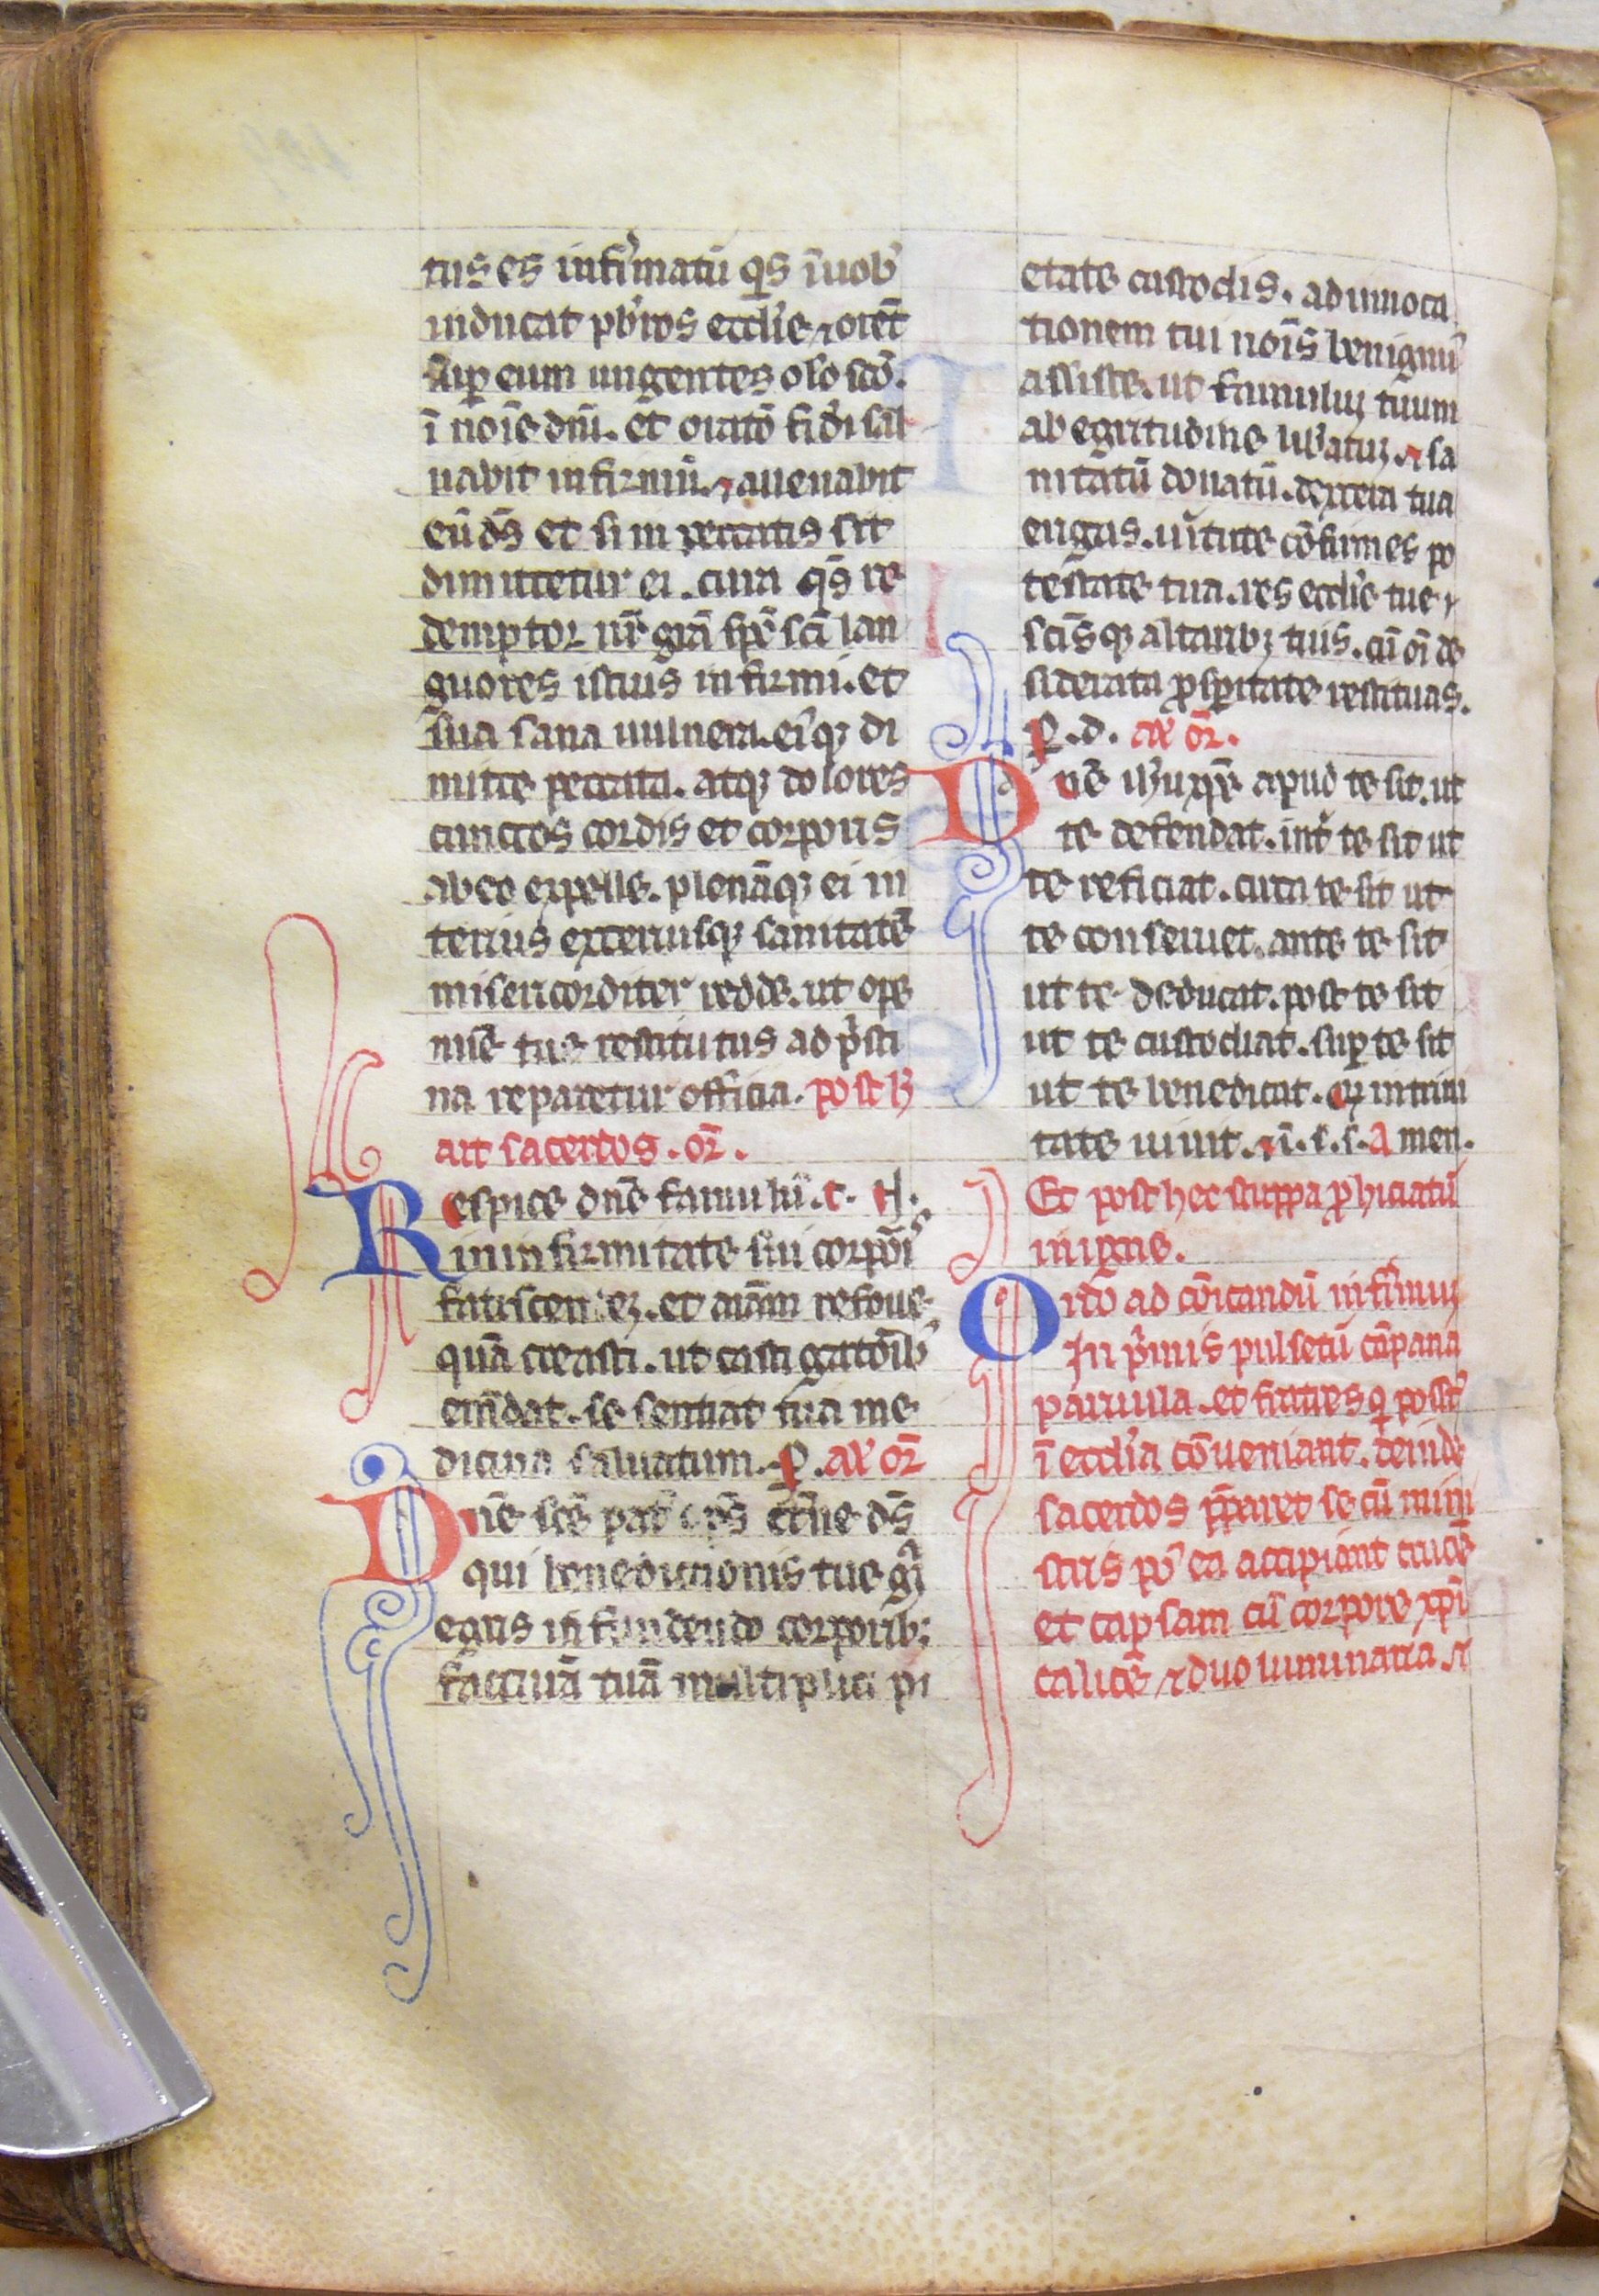 tus es infirmatū q̄s ī uob
inducat pb̓ros eccl̓ie ⁊ orēt
sup eum ungentes olo sc̄o.
ī noīe dn̄i. et oratō fid̓i sal
uabit infirmū. ⁊ alleuabit
eū ds̄ et si in peccatis sit
dimittetur ei. cura qs̄ re
demptor nr̄ grā sp̄c sc̄i lan
guores istius infirmi. et
sua sana uulnera. ei᷒qꝫ di
mitte peccata. atqꝫ dolores
cunctos cordis et corporis
ab eo expelle. plenāqꝫ ei in
terius exteriusqꝫ sanitatē
misericorditer redde. ut ope
mīe tue restitutus ad p̓sti
na reparetur officia. post h̄
ait sacerdos. or̄.
Respice dn̄e famulū. t. N.
in infirmitate sui corp̄oi᷒
fatiscenteꝫ. et aīam refoue
quā creasti. ut castigatōib᷒
emēdat. se sentiat tua me
dicina saluatum. P. al̓ or̄
Dn̄e sc̄e pat̓ ōps̄ et̓ne ds̄
qui benedictionis tue gr̄
egris infundendo corporibꝫ
facturā tuā multiplici pi
etate custodis. ad inuoca
tionem tui noīs benignus᷒
assiste. ut famuluꝫ tuum
ab egritudine lib̓atuꝫ. ⁊ sa
nitatū donatū. dextera tua
erigas. uirtute cōfirmes po
testate tua. res eccl̓ie tue ⁊
sc̄isqꝫ altaribꝫ tuis. cū oī de
siderata ꝓsꝑitate restituas.
P. d. al̓ or̄.
Dn̄e ih̓u xp̄e apud te sit. ut
te defendat. int̓ te sit ut
te reficiat. circa te sit ut
te conseruet. ante te sit
ut te deducat. post te sit
ut te custodiat. suꝑ te sit
ut te benedicat. qꝫ in trini
tate uiuit. ⁊ ī. s. s. Amen.
Et post hec stuppa ꝓhiciatū
in igne.
Ordo ad cōicandū infirmuꝫ
In p̓mis pulsetū cāpana
paruula. et fratres q̓ post̓
ī eccl̓ia cōueniant. deinde
sacerdos p̄paret se cū mini
stris po᷒ ea accipiant crucē
et capsam cū corpore xp̄i
calicē ⁊ duo luminaria ⁊